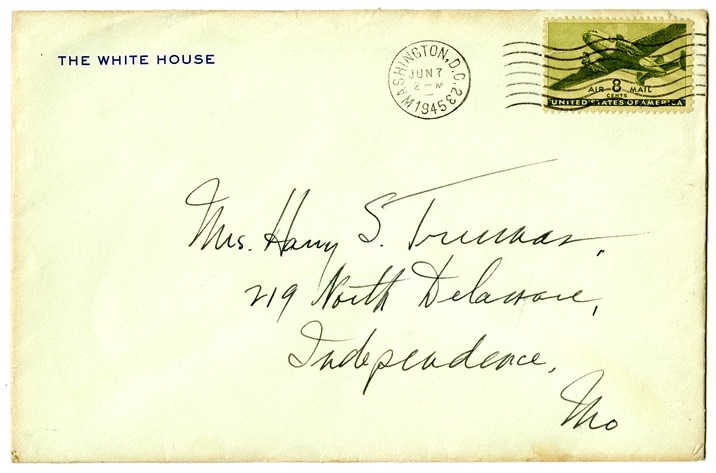 THE WHITE HOUSE
WASHINGTON, D.C. 23
JUN 7
1945
AIR 8 MAIL
CENTS
UNITED STATES OF AMERICA
Mrs. Harry S. Truman,
219 North Delaware,
Independence,
Mo